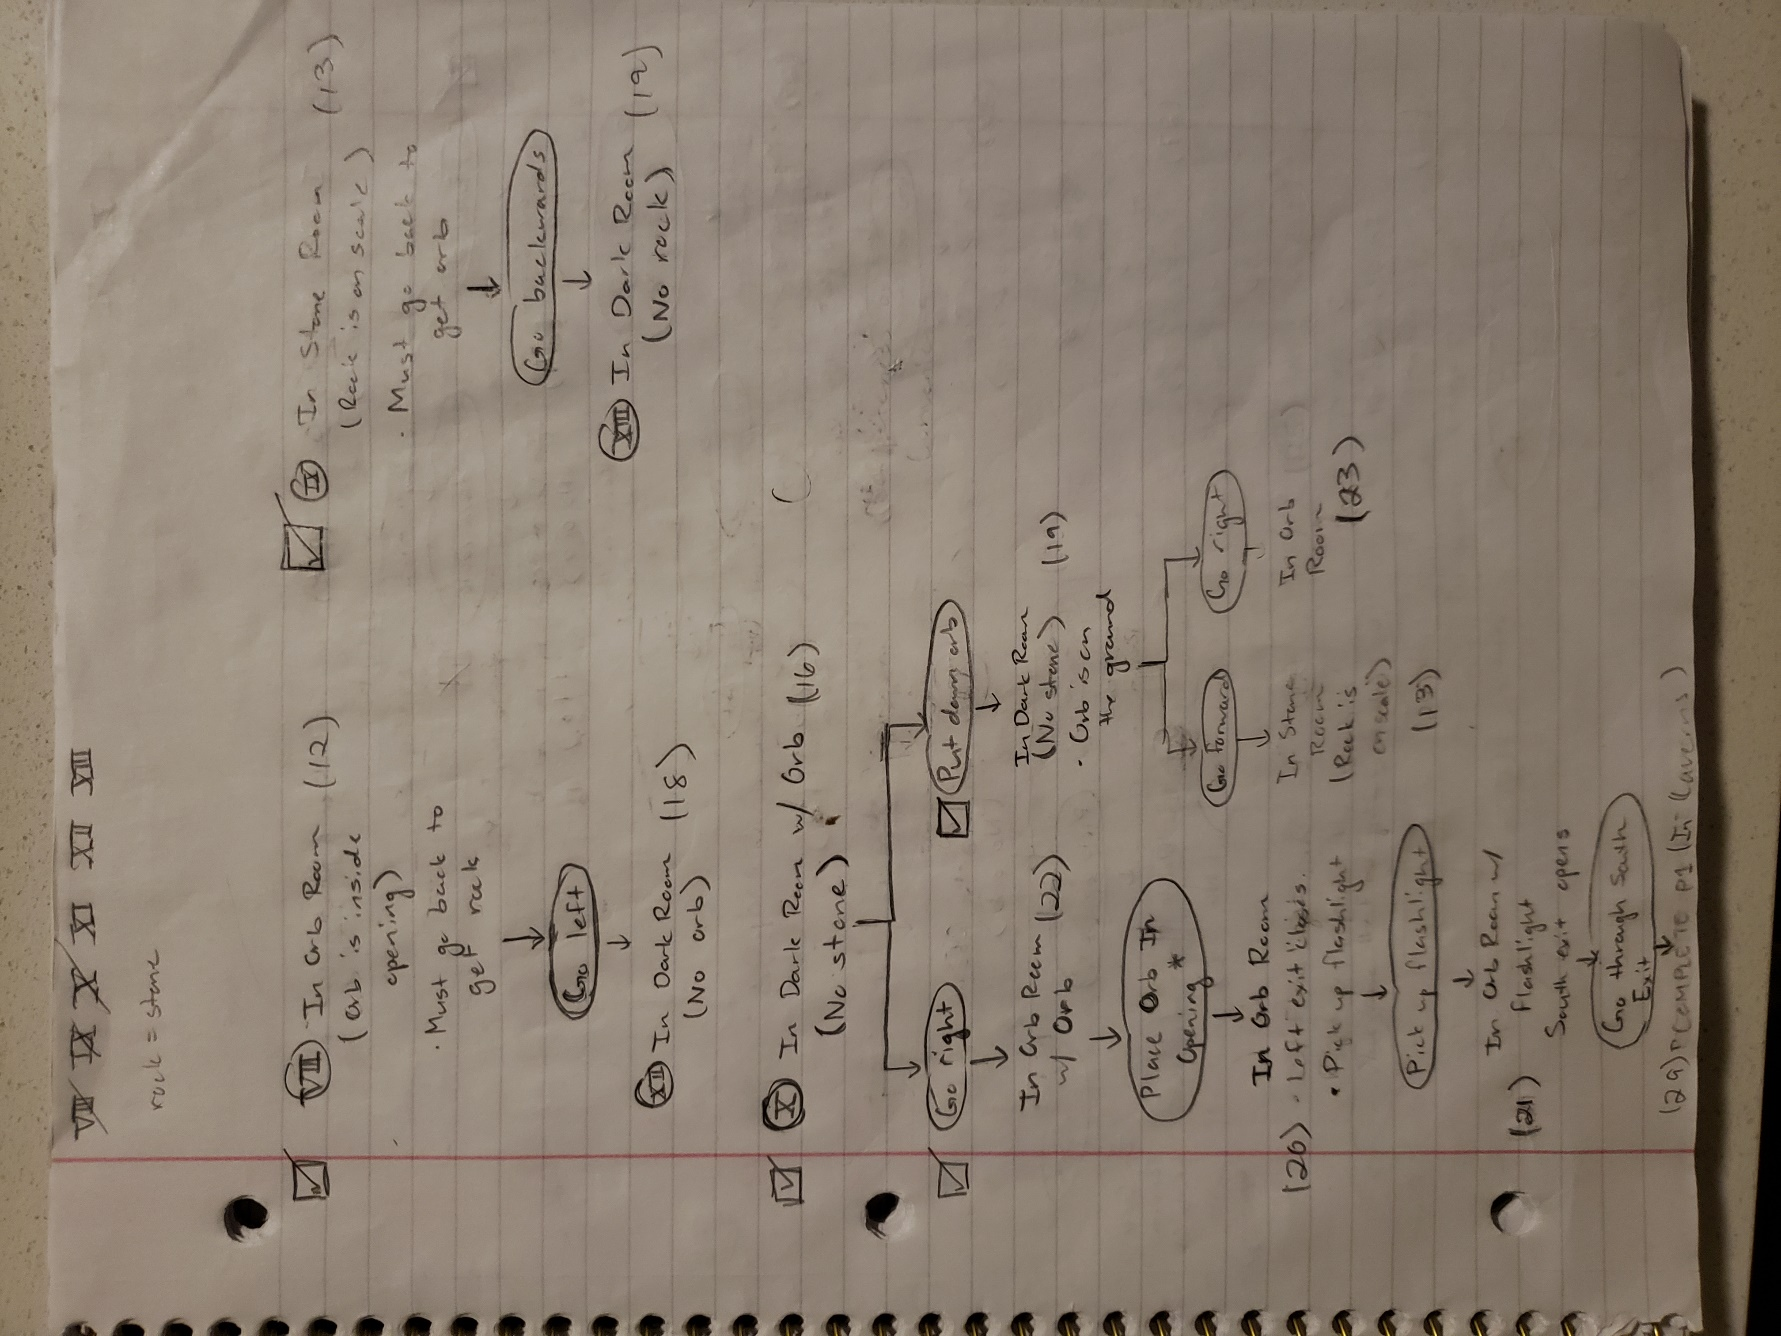 VIII IX X XI XII XIII
rock = stone
VIII In Orb Room (12)
(orb is inside
opening)
· Must go back to
get rock
Go left
XII In Dark Room (18)
(No orb)
IX In Stone Room (13)
(Rock is on scale)
· Must go back to
get orb
Go backwards
XIII In Dark Room (19)
(No rock)
X In Dark Room w/ Orb (16)
(No stone)
Go right
In Orb Room (22)
w/ Orb
Place Orb In
Opening *
In Orb Room
(20) · Left exit closes.
· Pick up flashlight
Pick up flashlight
In Orb Room w/
(21) flashlight
South exit opens
Go through South
Exit
(29) COMPLETE P1 (In Caverns)
Put down orb
In Dark Room
(No stone) (19)
· Orb is on
the ground
Go forward
In Stone
Room
(Rock is
on scale)
(13)
Go right
In Orb
Room
(23)